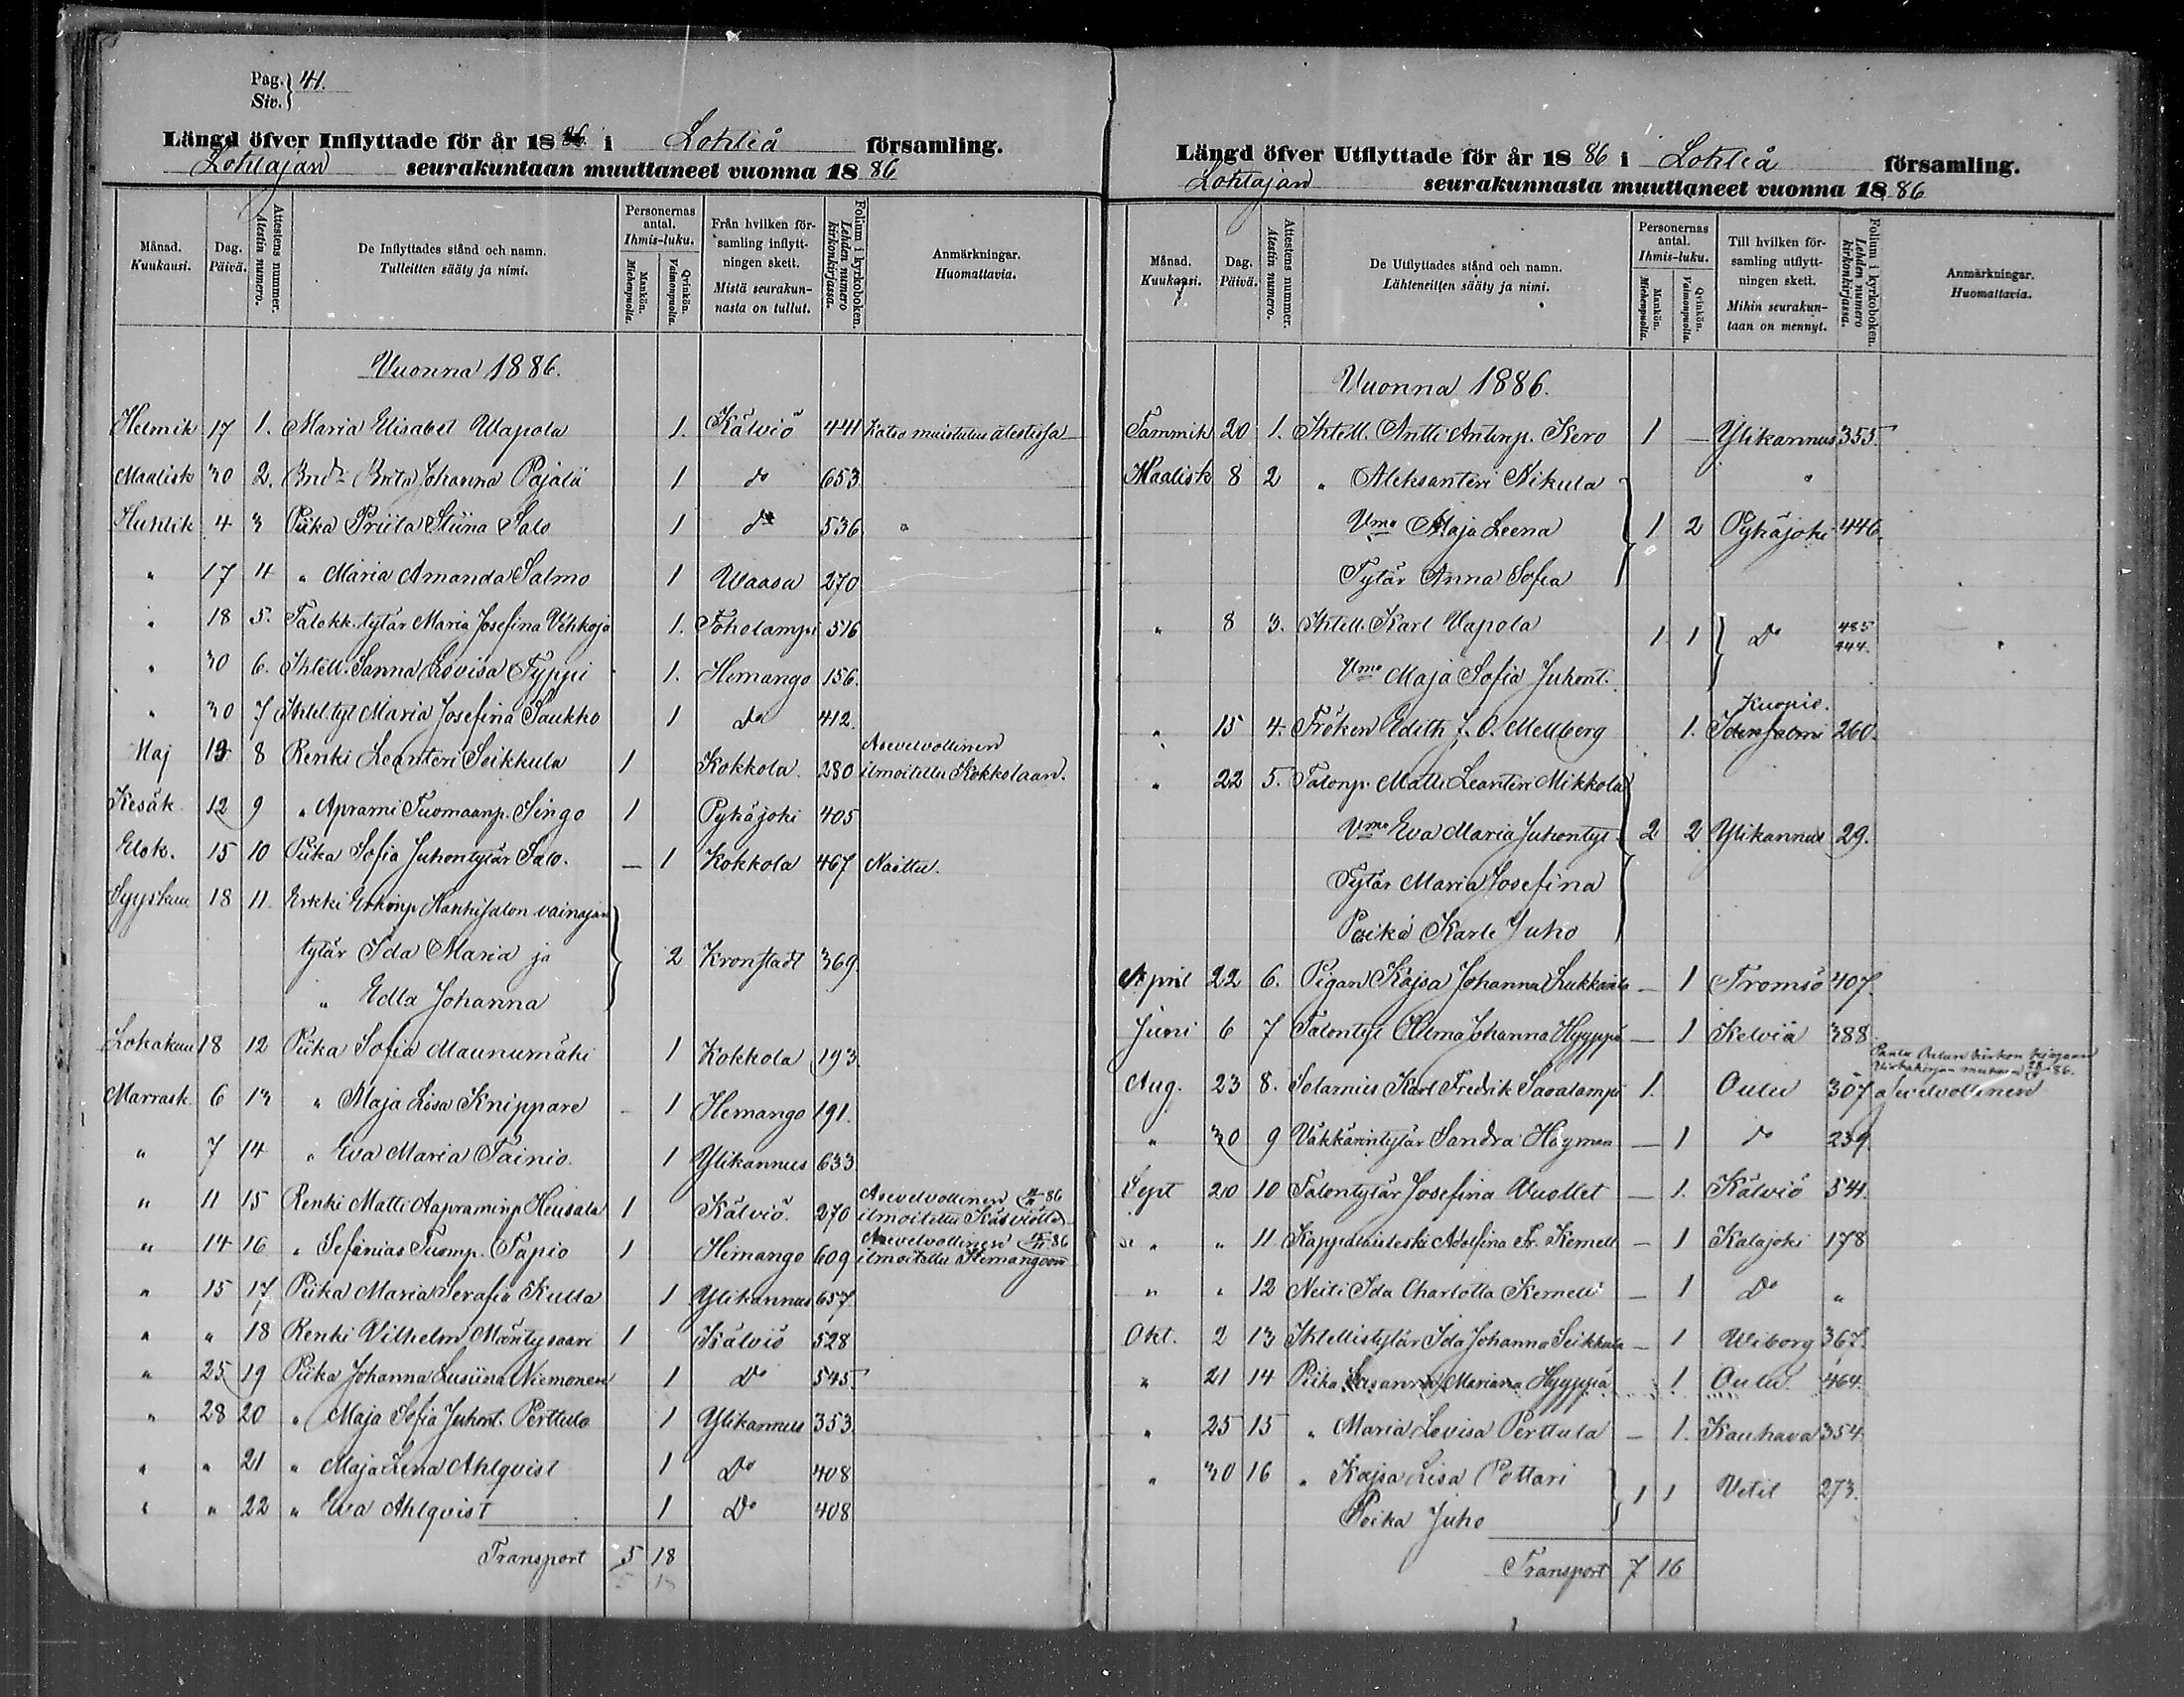 Pag. } 41.
Siv. }
Längd öfver Inflyttade för år 1886 i Lohteå församling.
Lohtajan seurakuntaan muuttaneet vuonna 1886
Månad. Kuukausi.
Dag. Päivä.
Attestens nummer. Atestin numero.
De Inflyttades stånd och namn. Tulleitten sääty ja nimi.
Personernas antal. Ihmis-luku.
Mankön. Miehenpuolia.
Qvinkön. Vaimonpuolia.
Från hvilken församling inflyttningen skett. Mistä seurakunnasta on tullut.
Folium i kyrkoboken. Lehden numero kirkonkirjassa.
Anmärkningar. Huomattavia.
Vuonna 1886.
Helmik 17 1. Maria Elisabet Wapola 1. Kälviö 441 Katso muistutus atestissa
Maalisk 30 2. Johanna Pajala 1 do 653
Huhtik 4 3 Piika Priita Stiina Salo 1 do 536 "
" 17 4 " Maria Amanda Salmo 1 Waasa 270
" 18 5. Talokk. tytär Maria Josefina Vehkoja 1. Toholampi 516
" 30 6. Ihtell. Sanna Lovisa Typpi 1. Himango 156.
" 30 7 Ihtel.tyt Maria Josefina Saukko 1 Do 412.
Maj 13 8 Renki Leanteri Seikkula 1 Kokkola. 280 Asevelvollinen ilmoitettu Kokkolaan.
Kesäk 12 9 " Aprami Tuomaanp. Singo 1 Pyhäjoki 405
Elok. 15 10 Piika Sofia Juhontytär Salo. — 1 Kokkola 467 Naittu.
Syyskuu 18 11. Erkki Erkinp. Hankisalon vainajan
tytär Ida Maria ja } 2 Kronstadt 369
" Edla Johanna
Lokakuu 18 12 Piika Sofia Maunumäki 1 Kokkola 193.
Marrask 6 13 " Maja Lisa Knippare - 1 Himango 191.
" 7 14 " Eva Maria Tainio. 1 Ylikannus 633
" 11 15 Renki Matti Aapraminp Heusala 1 Kälviö. 270 Asevelvollinen ilmoitettu
" 14 16 " Sefanias Tuomp. Tapio 1 Himango 609 Asevelvollinen ilmoitettu Himangoon
" 15 17 Piika Maria Serafia Kulla 1 Ylikannus 657.
" " 18 Renki Vilhelm Mäntysaari 1 Kälviö 528
" 25 19 Piika Johanna Lusiina Niemonen 1 Do 545
" 28 20 " Maja Sofia Juhont. Perttula 1 Ylikannus 353
" " 21 " Maja Lena Ahlqvist 1 Do 408
" " 22 " Eva Ahlqvist 1 Do 408
Transport 5 18
Längd öfver Utflyttade för år 1886 i Lohteå församling.
Lohtajan seurakunnasta muuttaneet vuonna 1886
Månad. Kuukausi.
Dag. Päivä.
Attestens nummer. Atestin numero.
De Utflyttades stånd och namn. Lähteneitten sääty ja nimi.
Personernas antal. Ihmis-luku.
Mankön. Miehenpuolia.
Qvinkön. Vaimonpuolia.
Till hvilken församling utflyttningen skett. Mihin seurakuntaan on mennyt.
Folium i kyrkoboken. Lehden numero kirkonkirjassa.
Anmärkningar. Huomattavia.
Vuonna 1886.
Tammik 20 1. Ihtell. Antti Antinp. Kero 1 — Ylikannus 355.
Maalisk 8 2 " Aleksanteri Nikula "
Vmo Maja Leena } 1 2 Pyhäjoki 446.
Tytär Anna Sofia
" 8 3. Ihtell. Karl Vapola 1 1 } Do 485 444.
Vmo Maja Sofia Juhont.
" 15 4. Fröken Edith J. O. Mellberg 1. Kuopio. Idensalmi 260.
" 22 5. Talonp. Matti Leanteri Mikkola
Vmo Eva Maria Juhontyt } 2 2 Ylikannus 29.
Tytär Maria Josefina
Poika Karle Juho
April 22 6. Pigan Kajsa Johanna Lukkarila — 1 Tromsö 407.
Juni 6 7 Talontyt Hilma Johanna Hyyppä — 1 Kelviä 388
Aug. 23 8. Sotamies Karl Fredrik Savolampi 1. Oulu 307 asevelvollinen
" 30 9 Väkkärintytär Sandra Hagman — 1 do 239
Sept 20 10 Talontytär Josefina Vuollet — 1. Kälviö 541.
" " 11 Kappalaisleski Adolfina Fr. Kemell — 1 Kalajoki 178
" " 12 Neiti Ida Charlotta Kemell — 1 Do "
Okt. 2 13 Ihtellistytär Ida Johanna Seikkula — 1 Wiborg 367.
" 21 14 Piika Susanna Mariana Hyyppä 1 Oulu 464.
" 25 15 " Maria Lovisa Perttula — 1. Kauhava 354
" 30 16 " Kajsa Lisa Pottari } 1 1 Vetil 273.
Poika Juho
Transport 7 16